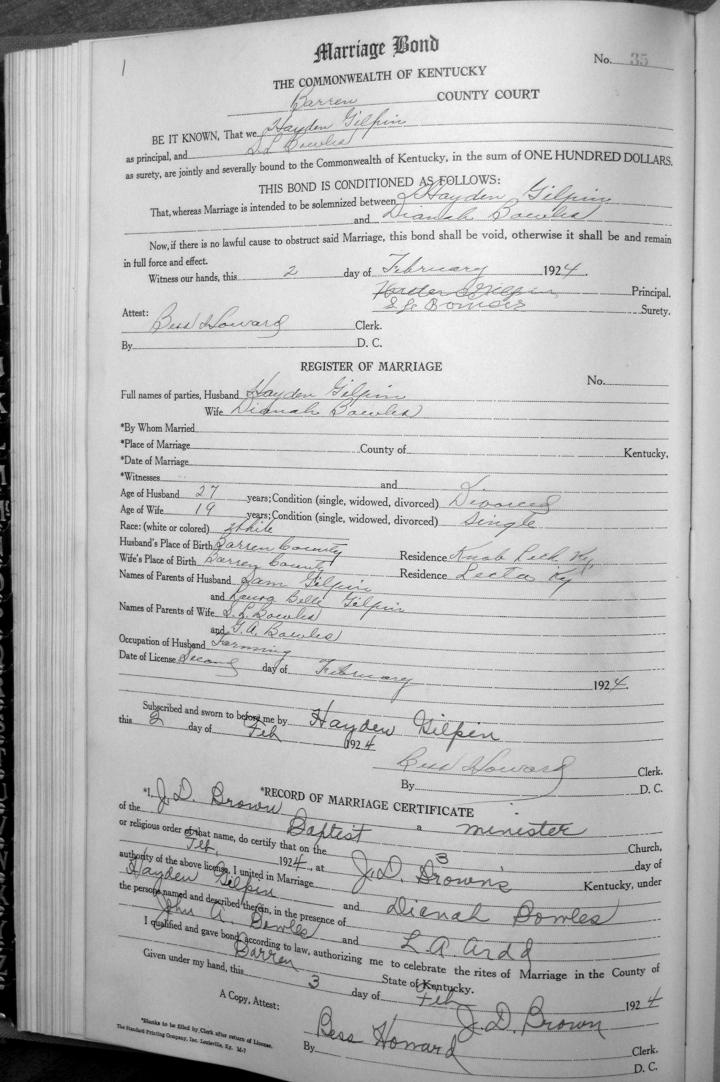 1
Marriage Bond
No. 35
THE COMMONWEALTH OF KENTUCKY
Barren COUNTY COURT
BE IT KNOWN, That we Hayden Gilpin
as principal, and S. L. Bowles
as surety, are jointly and severally bound to the Commonwealth of Kentucky, in the sum of ONE HUNDRED DOLLARS.
THIS BOND IS CONDITIONED AS FOLLOWS:
That, whereas Marriage is intended to be solemnized between Hayden Gilpin
and Dianah Bowles
Now, if there is no lawful cause to obstruct said Marriage, this bond shall be void, otherwise it shall be and remain
in full force and effect.
Witness our hands, this 2 day of February 1924.
Gilpin Principal.
Surety.
Attest:
Bess Howard Clerk.
By D. C.
REGISTER OF MARRIAGE
No.
Full names of parties, Husband Hayden Gilpin
Wife Dianah Bowles
*By Whom Married
*Place of Marriage County of Kentucky,
*Date of Marriage
*Witnesses and
Age of Husband 27 years; Condition (single, widowed, divorced) Divorced
Age of Wife 19 years; Condition (single, widowed, divorced) Single
Race: (white or colored) White
Husband's Place of Birth Barren County Residence Knob Lick Ky,
Wife's Place of Birth Barren County Residence Lecta Ky
Names of Parents of Husband Sam Gilpin
and Laura Belle Gilpin
Names of Parents of Wife S. L. Bowles
and G. A. Bowles
Occupation of Husband Farming
Date of License Second day of February 1924.
Subscribed and sworn to before me by Hayden Gilpin
this 2 day of Feb 1924
Bess Howard Clerk.
By D. C.
*RECORD OF MARRIAGE CERTIFICATE
*I, J. D. Brown a minister
of the Baptist Church,
or religious order of that name, do certify that on the 3 day of
Feb 1924, at J. D. Brown's Kentucky, under
authority of the above license, I united in Marriage
Hayden Gilpin and Dianah Bowles
the persons named and described therein, in the presence of
John A. Bowles and L. A. Ardd
I qualified and gave bond according to law, authorizing me to celebrate the rites of Marriage in the County of
Barren State of Kentucky.
Given under my hand, this 3 day of Feb 1924
J. D. Brown
A Copy, Attest:
Bess Howard Clerk.
By D. C.
*Blanks to be filled by Clerk after return of License.
The Standard Printing Company, Inc. Louisville, Ky. M-7